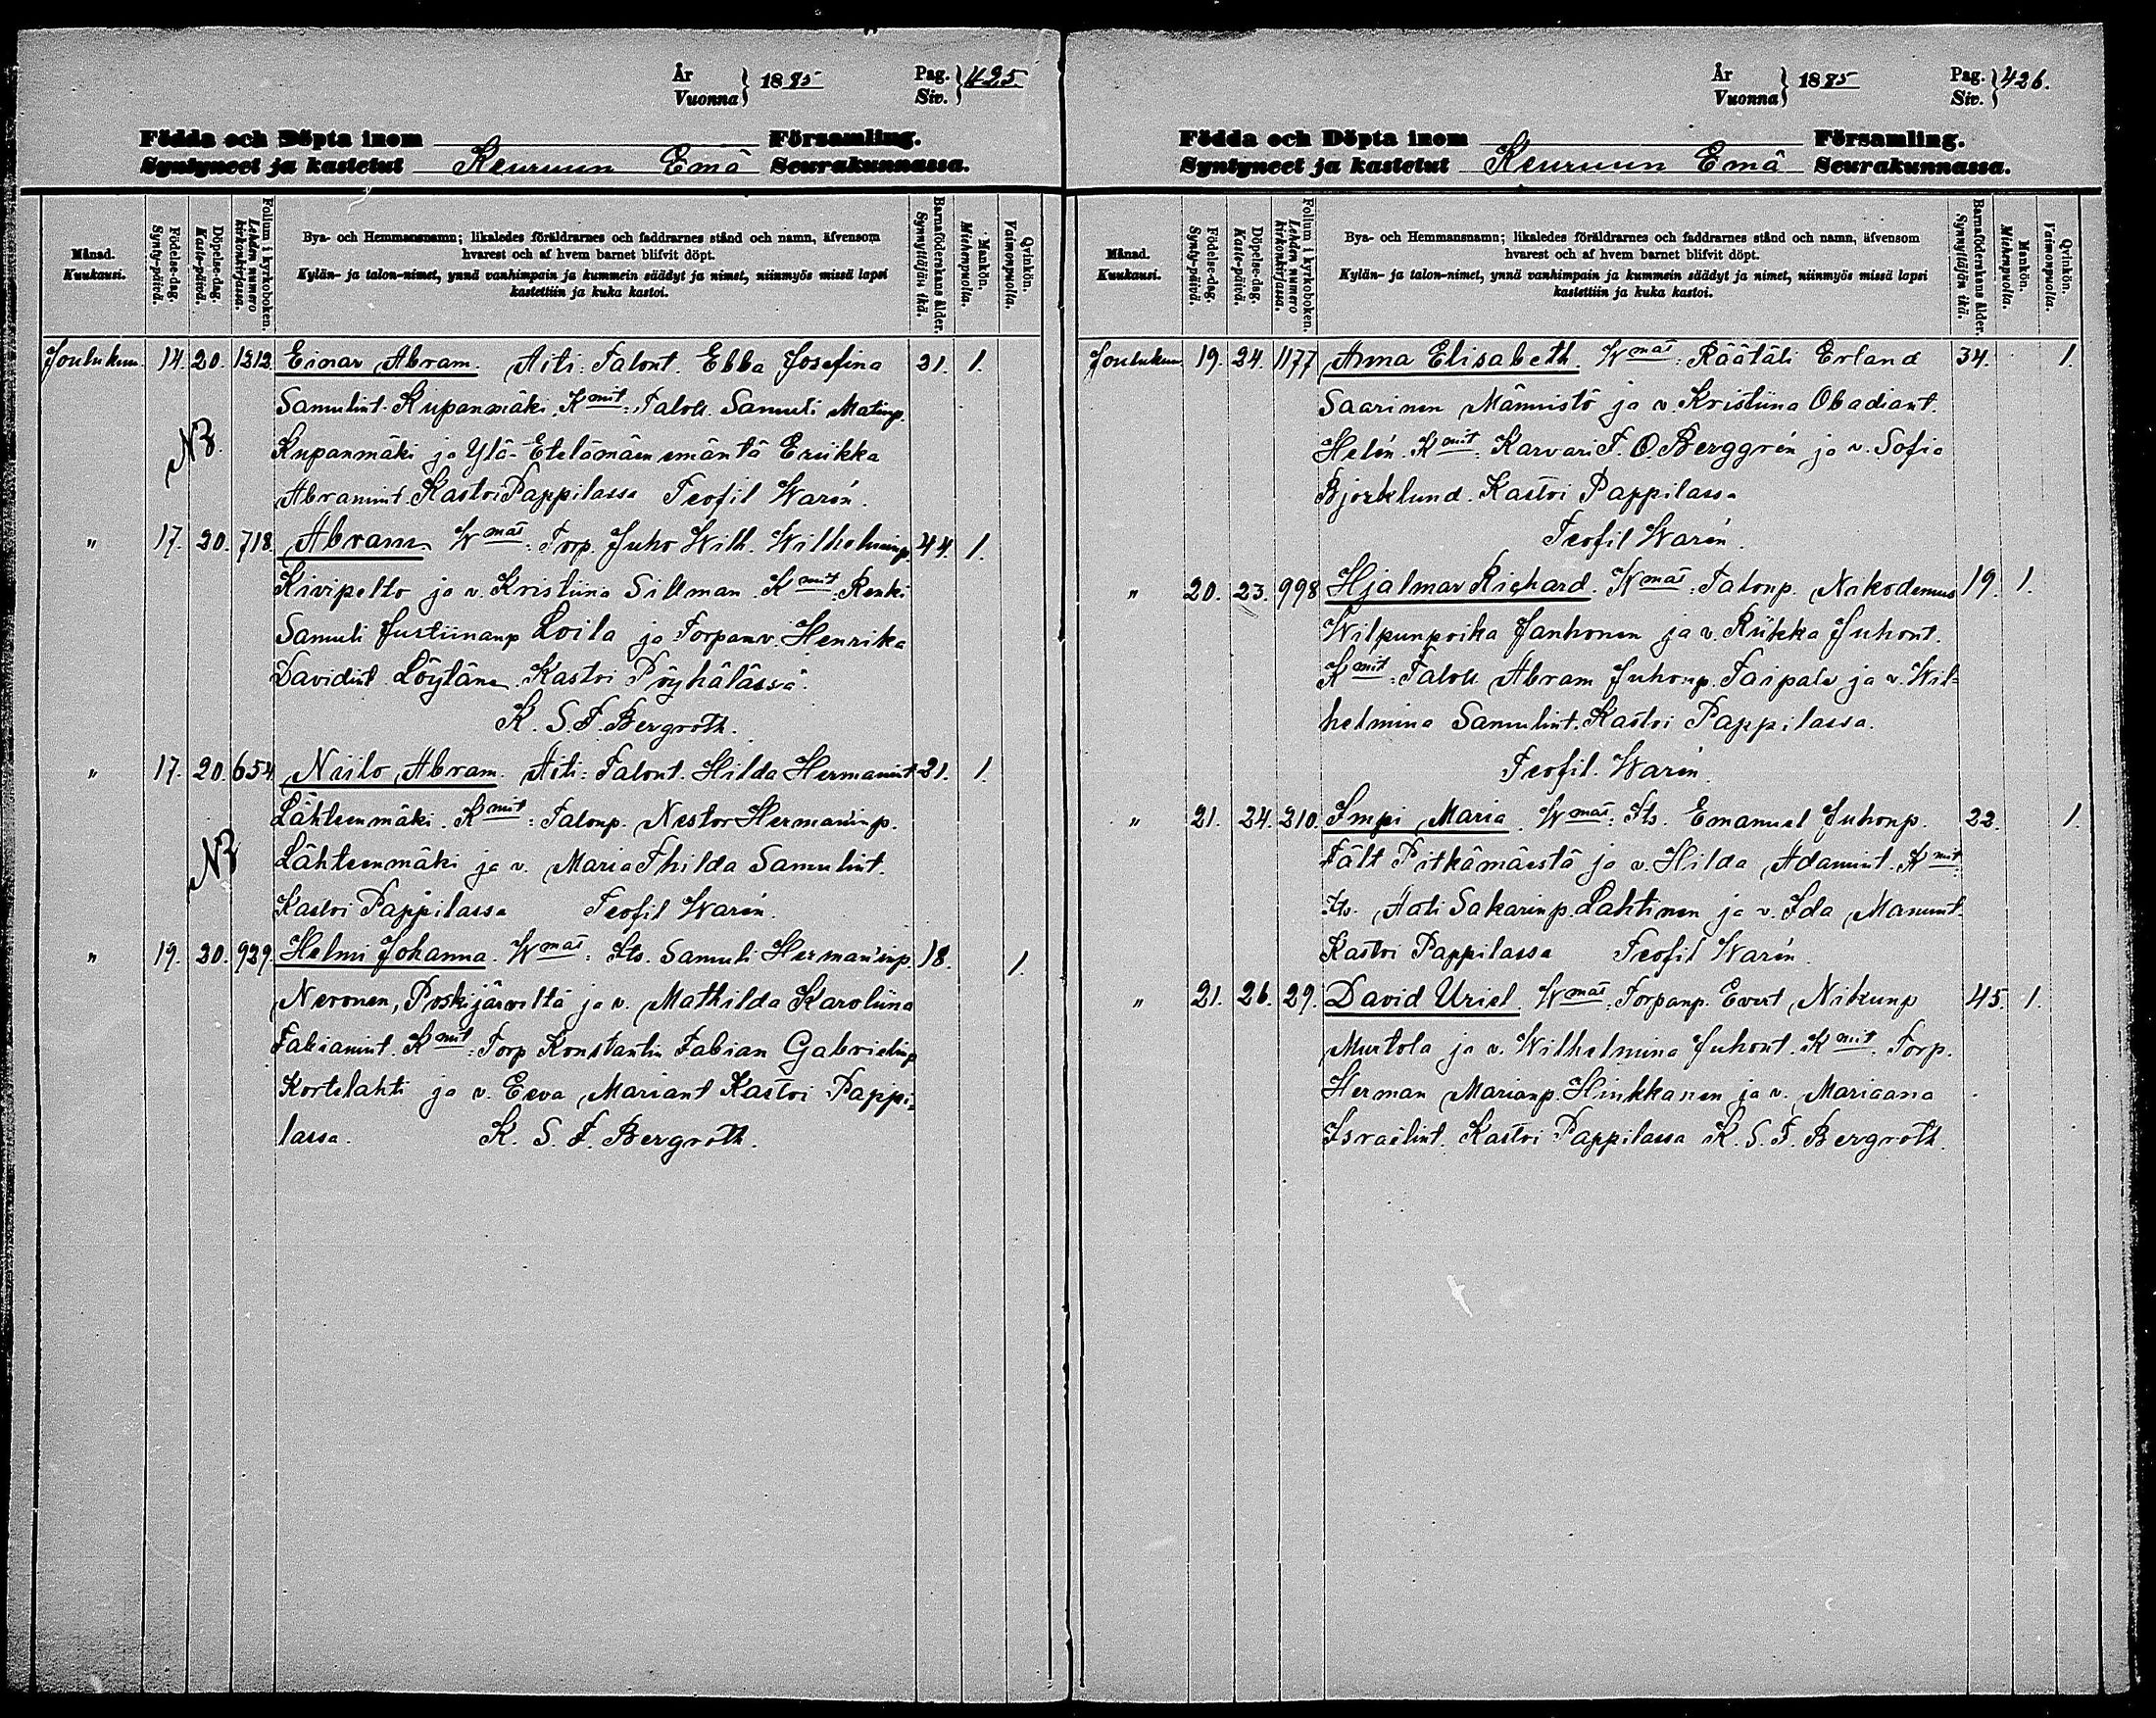 År
Vuonna } 1885
Pag.
Siv. } 425
Födda och Döpta inom Församling.
Syntyneet ja kastetut Keuruun Emä Seurakunnassa.
Månad.
Kuukausi.
Födelse-dag.
Synty-päivä.
Döpelse-dag.
Kaste-päivä.
Folium i kyrkoboken.
Lehden numero kirkonkirjassa.
Bya- och Hemmansnamn; likaledes föräldrarnes och faddrarnes stånd och namn, äfvensom
hvarest och af hvem barnet blifvit döpt.
Kylän- ja talon-nimet, ynnä vanhimpain ja kummein säädyt ja nimet, niinmyös missä lapsi
kastettiin ja kuka kastoi.
Barnaföderskans ålder.
Synnyttäjän ikä.
Mankön.
Miehenpuolta.
Qvinkön.
Vaimonpuolta.
Joulukuu 14. 20. 1212. Einar Abram. Äiti: Talont. Ebba Josefina 21. 1.
Samulint. Kupanmäki. Kmit: Talol. Samuli Matinp.
NB. Kupanmäki ja Ylä-Etelämäen emäntä Eriikka
Abramint. Kastoi Pappilassa Teofil Warén.
" 17. 20. 718. Abram Wmat: Torp. Juho Wilh. Wilhelminp. 44. 1.
Kivipelto ja v. Kristiina Sillman. Kmit: Renki
Samuli Justiinanp Loila ja Torpanv. Henrika
Davidint. Löytäne. Kastoi Pöyhälässä.
K. S. F. Bergroth.
" 17. 20. 654. Niilo Abram. Äiti: Talont. Hilda Hermanint 21. 1.
Lähteenmäki. Kmit: Talonp. Nestor Hermaninp.
NB Lähteenmäki ja v. Maria Thilda Samulint.
Kastoi Pappilassa Teofil Warén.
" 19. 20. 929. Helmi Johanna. Wmat: Its. Samuli Hermaninp. 18. 1.
Nevonen, Poskijärveltä ja v. Mathilda Karoliina
Fabianint. Kmit: Torp Konstantin Fabian Gabrielinp
Kortelahti ja v. Eeva Mariant Kastoi Pappi-
lassa. K. S. F. Bergroth.
År
Vuonna } 1885
Pag.
Siv. } 426.
Födda och Döpta inom Församling.
Syntyneet ja kastetut Keuruun Emä Seurakunnassa.
Månad.
Kuukausi.
Födelse-dag.
Synty-päivä.
Döpelse-dag.
Kaste-päivä.
Folium i kyrkoboken.
Lehden numero kirkonkirjassa.
Bya- och Hemmansnamn; likaledes föräldrarnes och faddrarnes stånd och namn, äfvensom
hvarest och af hvem barnet blifvit döpt.
Kylän- ja talon-nimet, ynnä vanhimpain ja kummein säädyt ja nimet, niinmyös missä lapsi
kastettiin ja kuka kastoi.
Barnaföderskans ålder.
Synnyttäjän ikä.
Mankön.
Miehenpuolta.
Qvinkön.
Vaimonpuolta.
Joulukuu 19. 24. 1177 Anna Elisabeth. Wmat: Räätäli Erland 34. 1.
Saarinen Männistö ja v. Kristiina Obadiant.
Helén. Kmit: Karvari F. O. Berggrén ja v. Sofia
Bjorklund. Kastoi Pappilassa
Teofil Warén.
" 20. 23. 998 Hjalmar Richard. Wmat: Talonp. Nikodemus 19. 1.
Wilpunpoika Janhonen ja v. Riikka Juhont.
Kmit: Talol. Abram Juhonp. Taipale ja v. Wil-
helmina Samulint. Kastoi Pappilassa.
Teofil. Warén.
" 21. 24. 210. Impi Maria. Wmat: Its. Emanuel Juhonp. 22. 1.
Fält Pitkämäestä ja v. Hilda Adamint. Kmit:
Its. Aati Sakarinp. Lahtinen ja v. Ida Manunt.
Kastoi Pappilassa Teofil Warén.
" 21. 26. 29. David Uriel. Wmat: Torpanp. Evert Nikunp 45. 1.
Murtola ja v. Wilhelmina Juhont. Kmit. Torp.
Herman Marianp. Hinkkanen ja v. Mariaana
Israelint. Kastoi Pappilassa K. S. F. Bergroth.